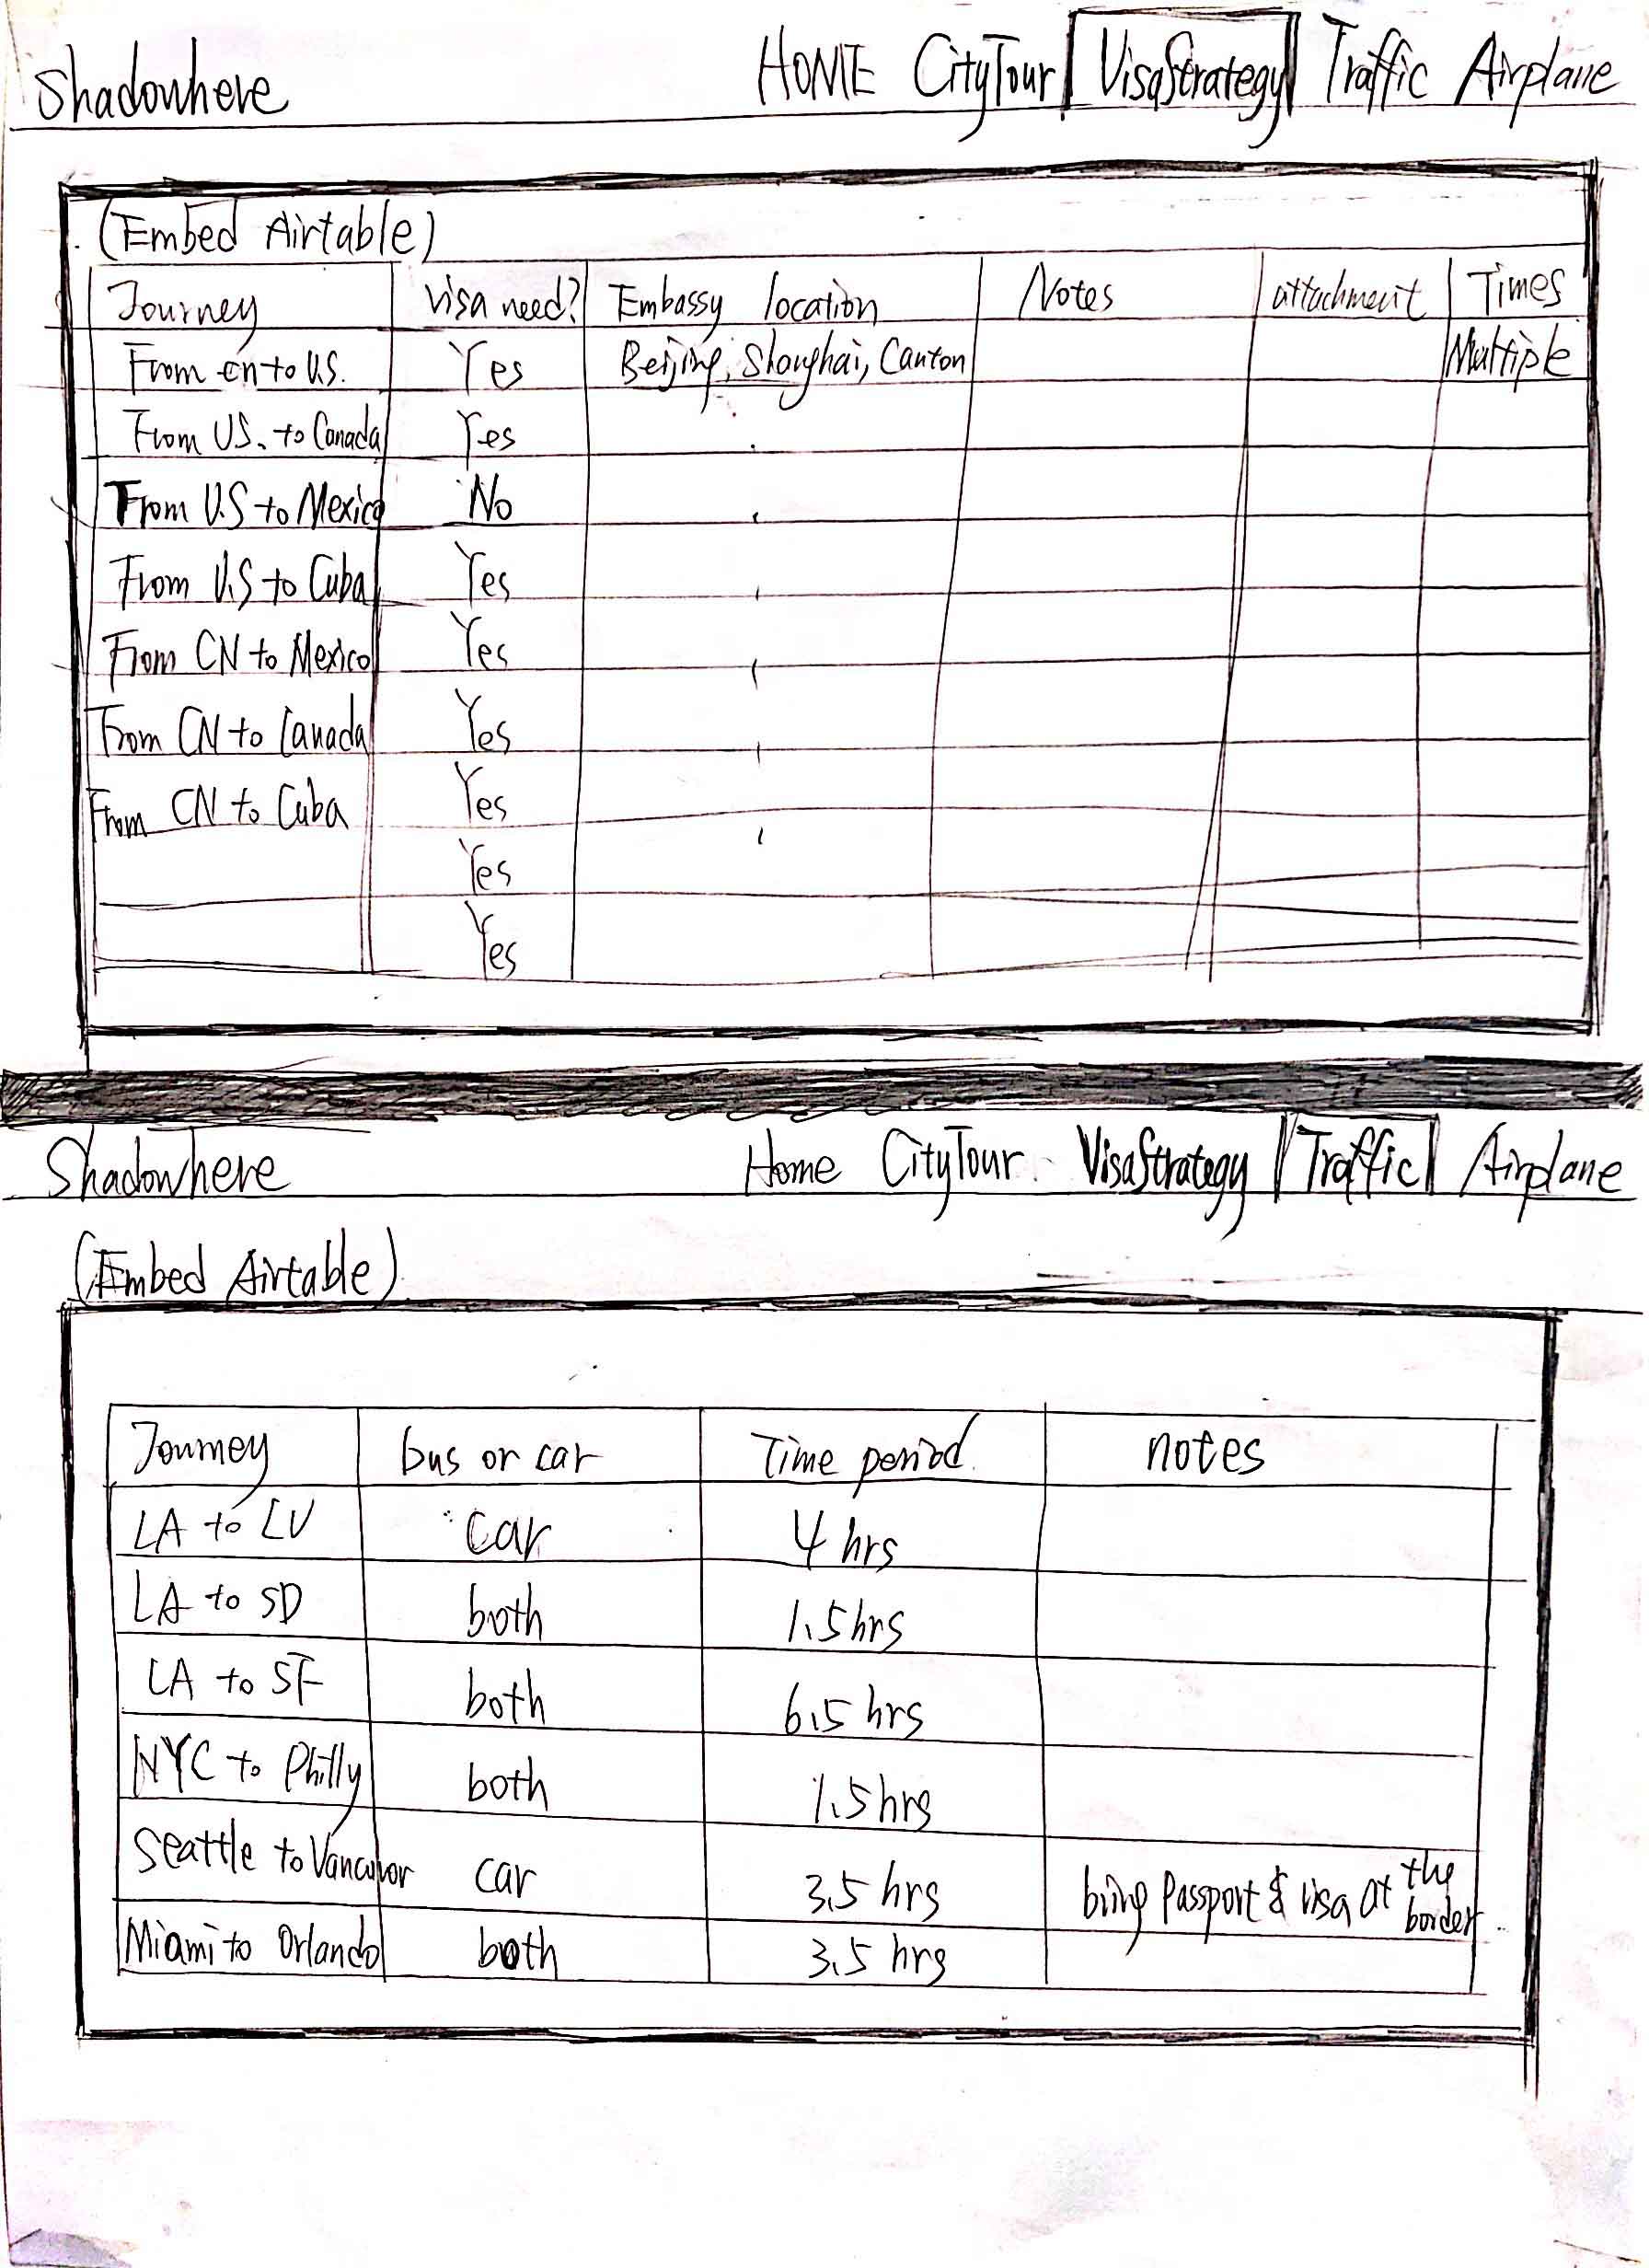 Shadowhere HOME CityTour VisaStrategy Traffic Airplane
(Embed Airtable)
Journey visa need? Embassy location Notes attachment Times
From cn to U.S. Yes Beijing, Shanghai, Canton Multiple
From US. to Canada Yes
From U.S to Mexico No
From U.S to Cuba Yes
From CN to Mexico Yes
From CN to Canada Yes
From CN to Cuba Yes
Yes
Yes
Shadowhere Home CityTour VisaStrategy Traffic Airplane
(Embed Airtable)
Journey bus or car Time period notes
LA to LV car 4 hrs
LA to SD both 1.5 hrs
LA to SF both 6.5 hrs
NYC to Philly both 1.5 hrs
Seattle to Vancuvor car 3.5 hrs bring Passport & visa at the border
Miami to Orlando both 3.5 hrs